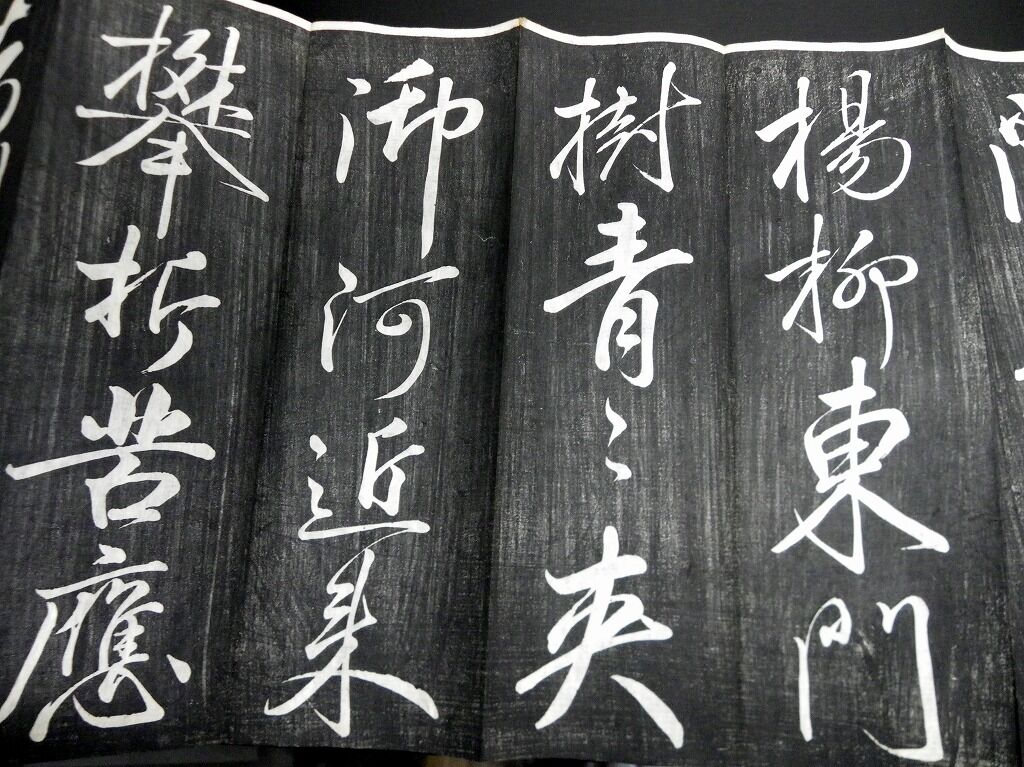 楊柳東門
樹青〻夾
御河近来
攀折苦應